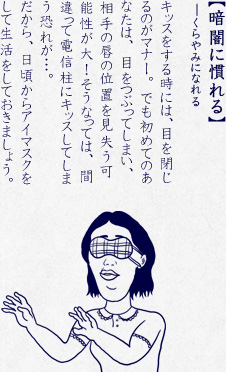 【暗闇に慣れる】
―くらやみになれる
キッスをする時には、目を閉じ
るのがマナー。でも初めてのあ
なたは、目をつぶってしまい、
相手の唇の位置を見失う可
能性が大!そうなっては、間
違って電信柱にキッスしてしま
う恐れが…。
だから、日頃からアイマスクを
して生活をしておきましょう。